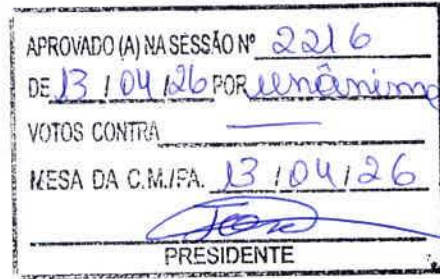 APROVADO (A) NA SESSÃO Nº 2216
DE 13 / 04 / 26 POR unânime
VOTOS CONTRA
MESA DA C.M./PA. 13 / 04 / 26
PRESIDENTE